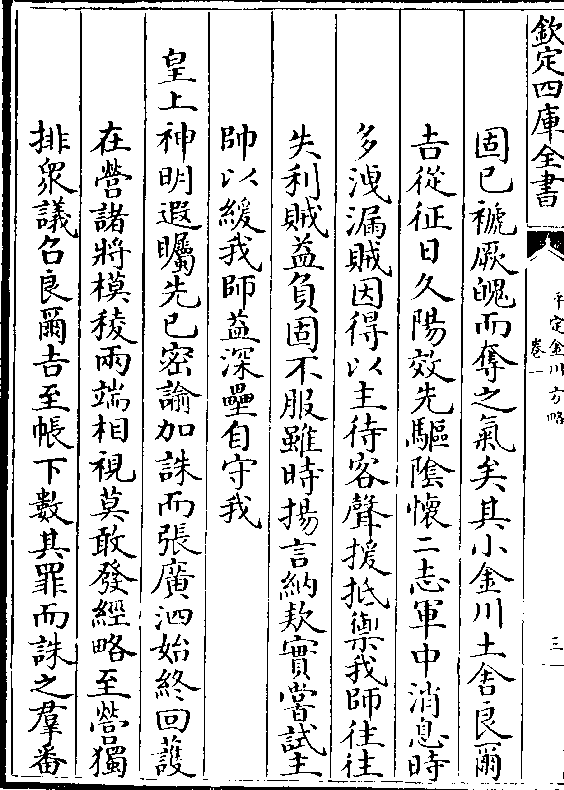 欽定四庫全書
平定金川方略
卷一
三
固已褫厥魄而奪之氣矣其小金川土舍良爾
吉從征日久陽效先驅陰懷二志軍中消息時
多洩漏賊因得以主待客聲援抵禦我師往往
失利賊益負固不服雖時揚言納欵實嘗試主
帥以緩我師益深壘自守我
皇上神明遐矚先已密諭加誅而張廣泗始終回護
在營諸將模稜兩端相視莫敢發經略至營獨
排衆議召良爾吉至帳下數其罪而誅之羣番